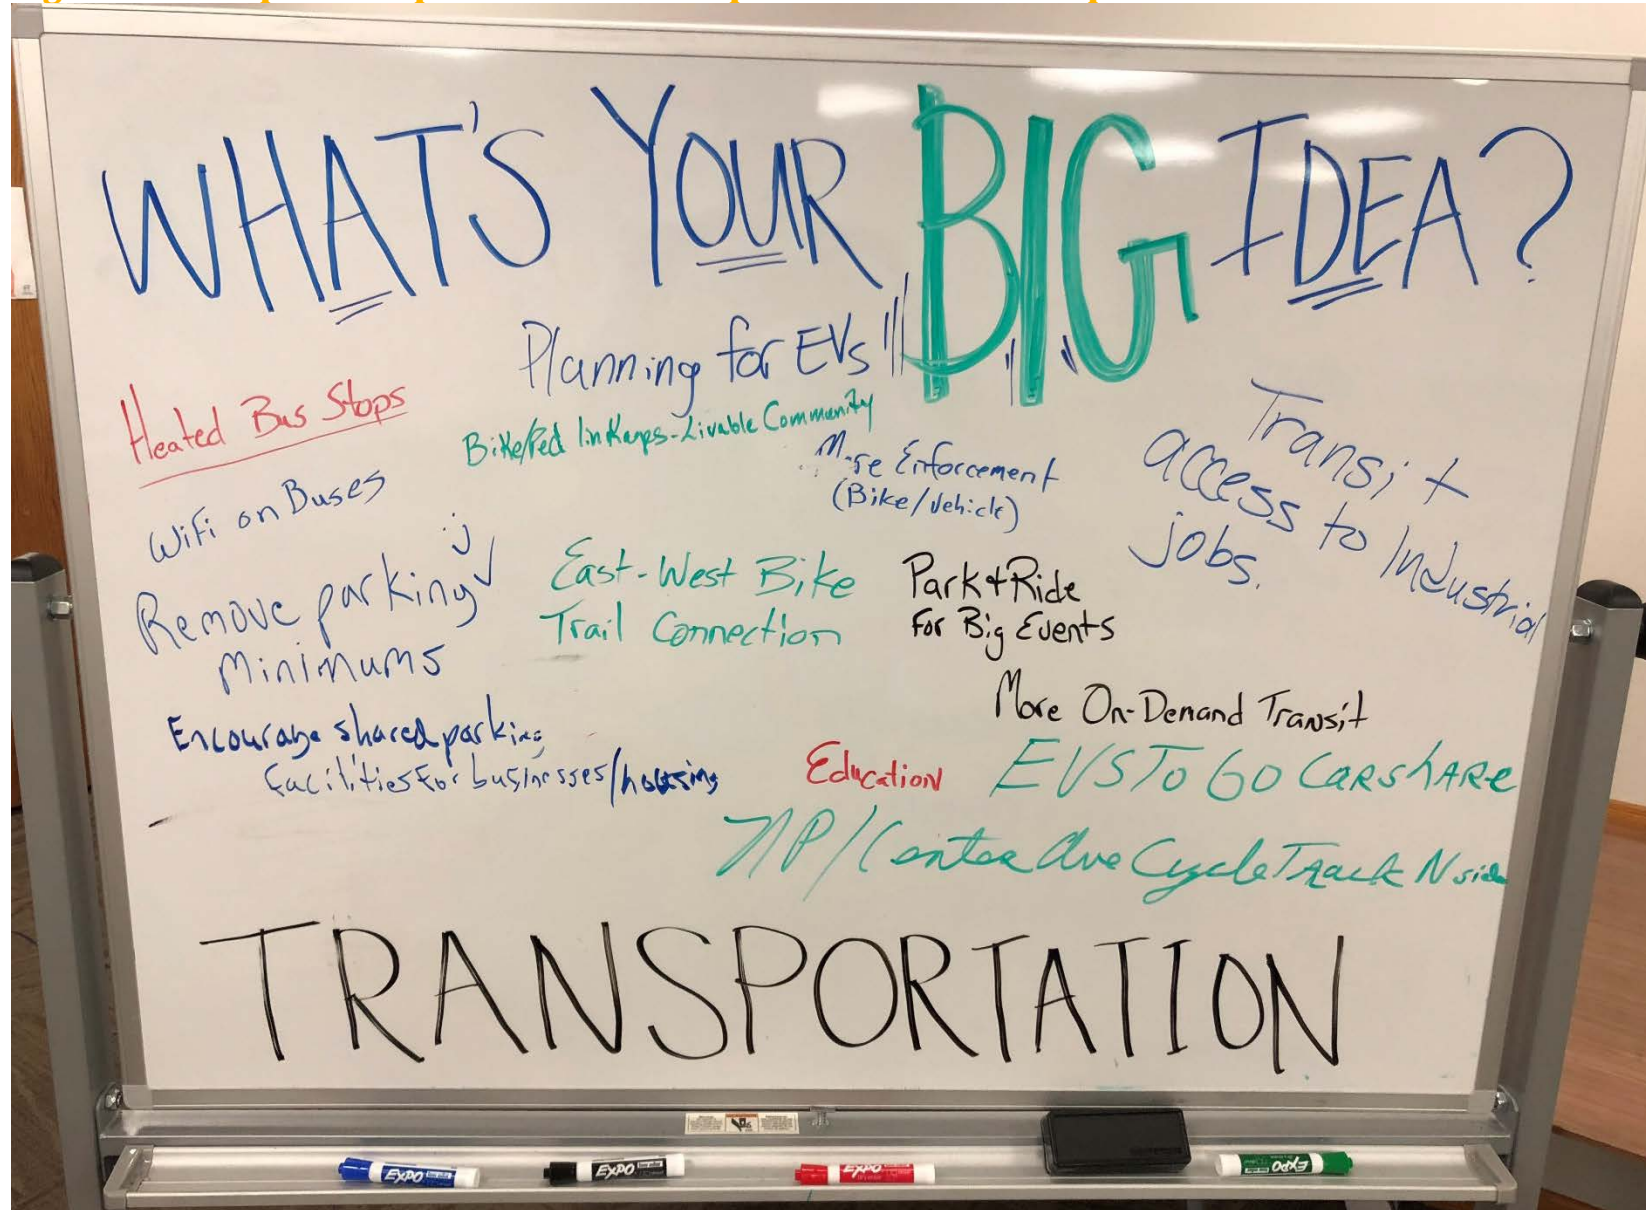 WHAT'S YOUR BIG IDEA?
Planning for EVs
Heated Bus Stops
Bike/Ped linkages-Livable Community
More Enforcement
(Bike/Vehicle)
Transit
access to Industrial
jobs.
WiFi on Buses
Remove parking
Minimums
East-West Bike
Trail Connection
Park & Ride
For Big Events
More On-Demand Transit
Encourage shared parking
facilities for businesses/housing
Education
EVS To GO CARshARe
NP/Center Ave Cycle Track N side
TRANSPORTATION
EXPO
EXPO
EXPO
EXPO